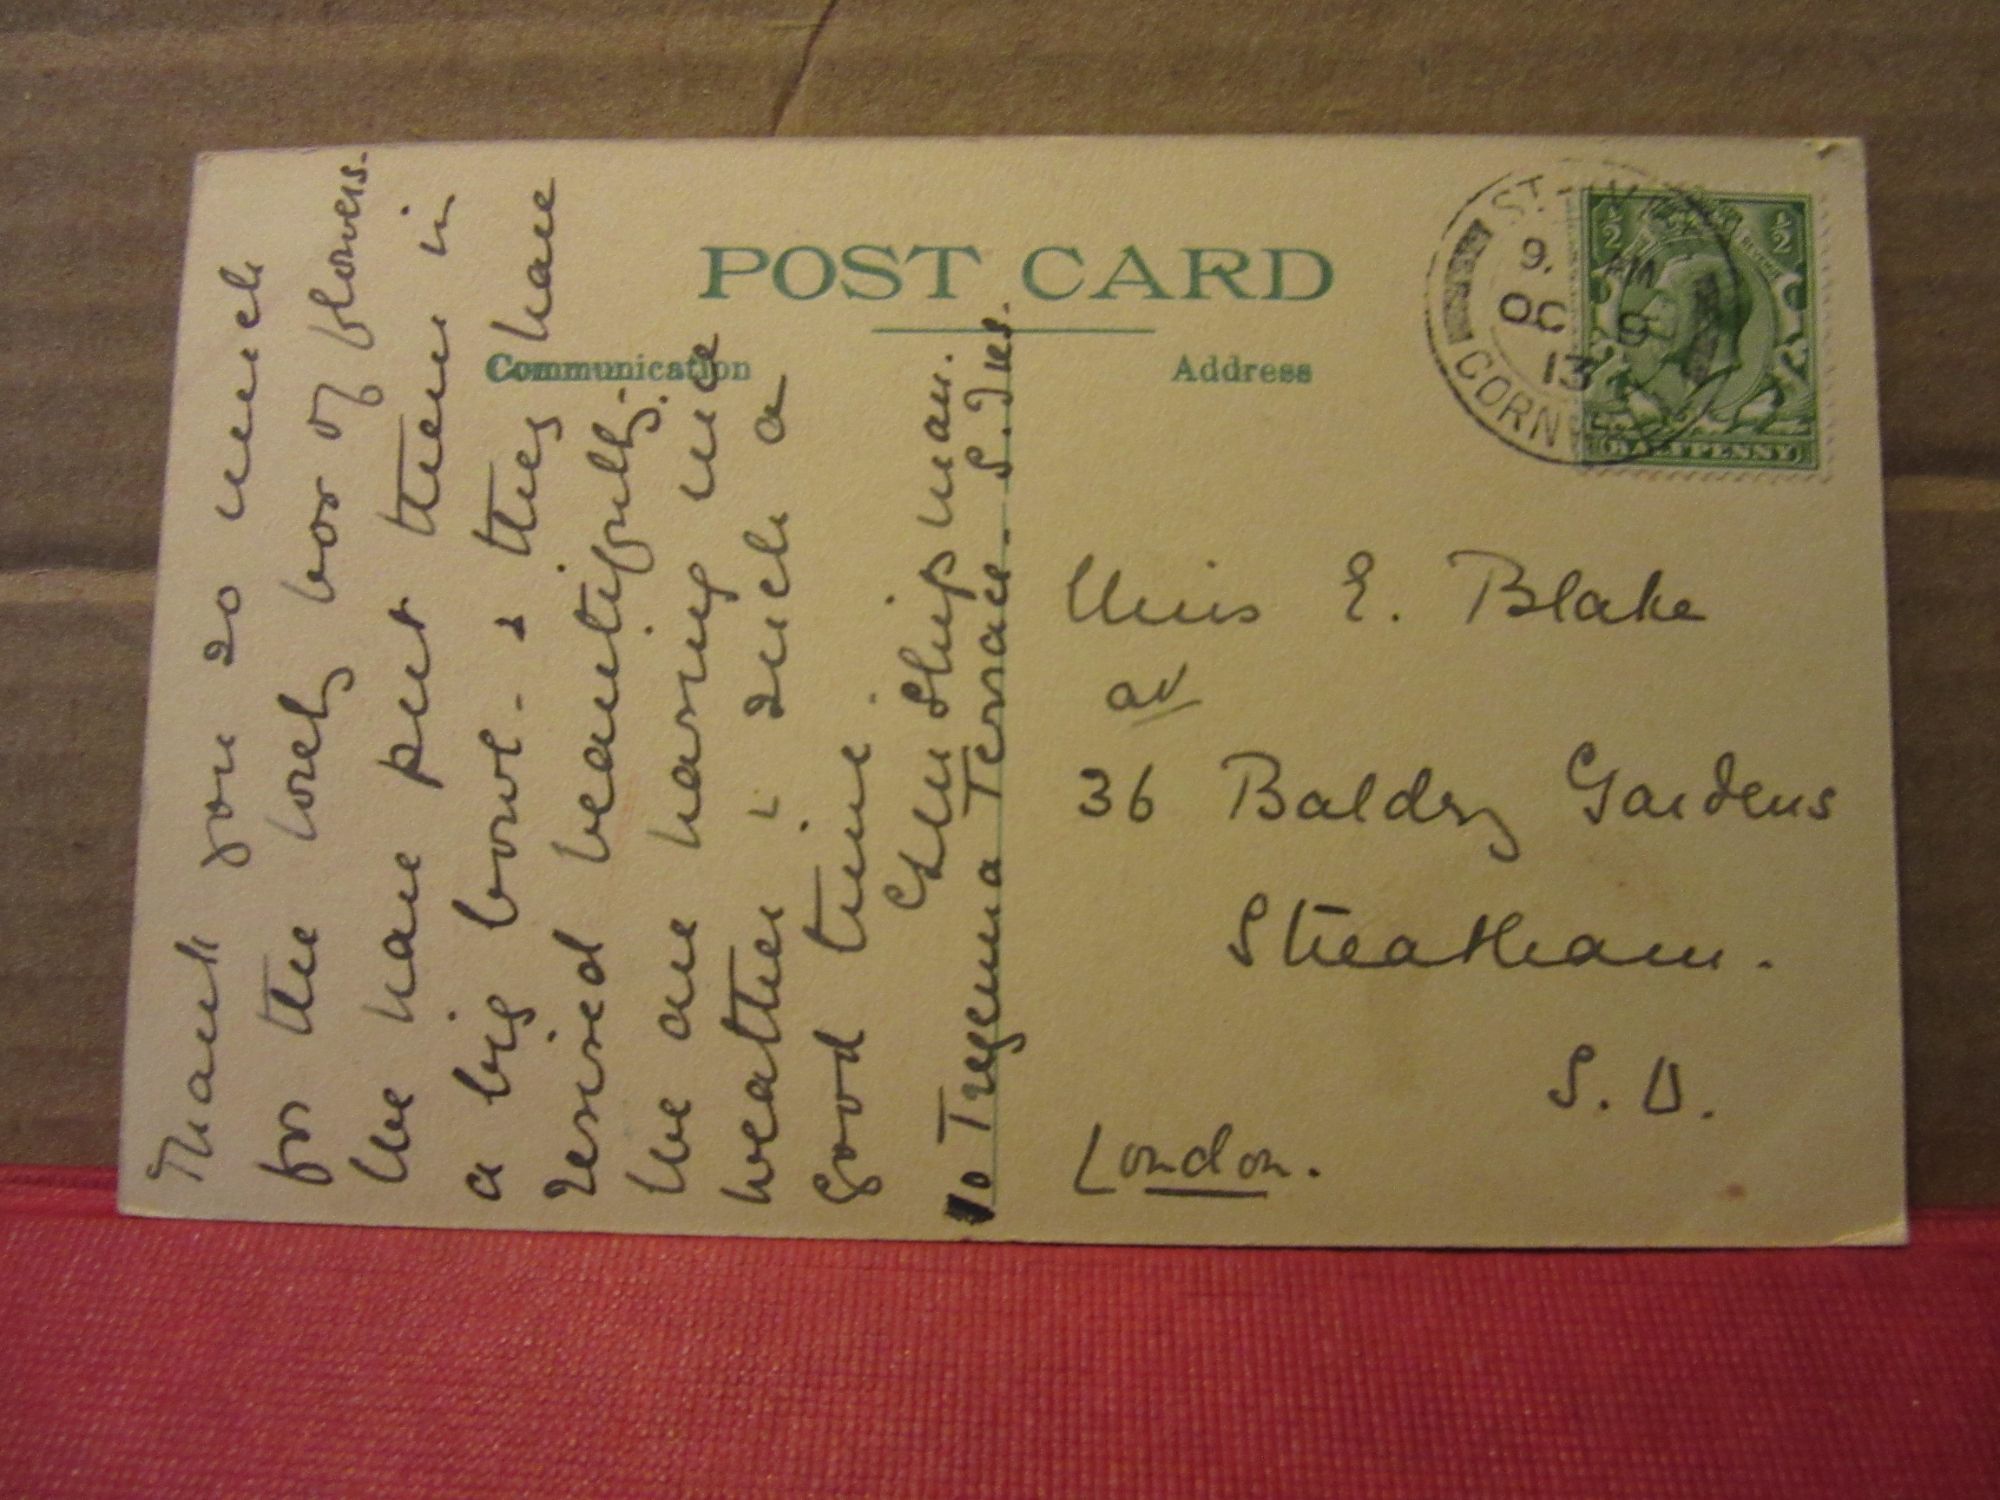 POST CARD
Communication
Address
Thank you so much
for the lovely box of flowers.
We have put them in
a big bowl - & they have
revived beautifully.
We are having nice
weather & such a
good time.
Shipman.
10 Tregenna Terrace. S. Ives.
Miss E. Blake
at
36 Baldry Gardens
Streatham.
S. W.
London.
ST.
9. AM
OC 9
13
CORN
½ ½
HALFPENNY